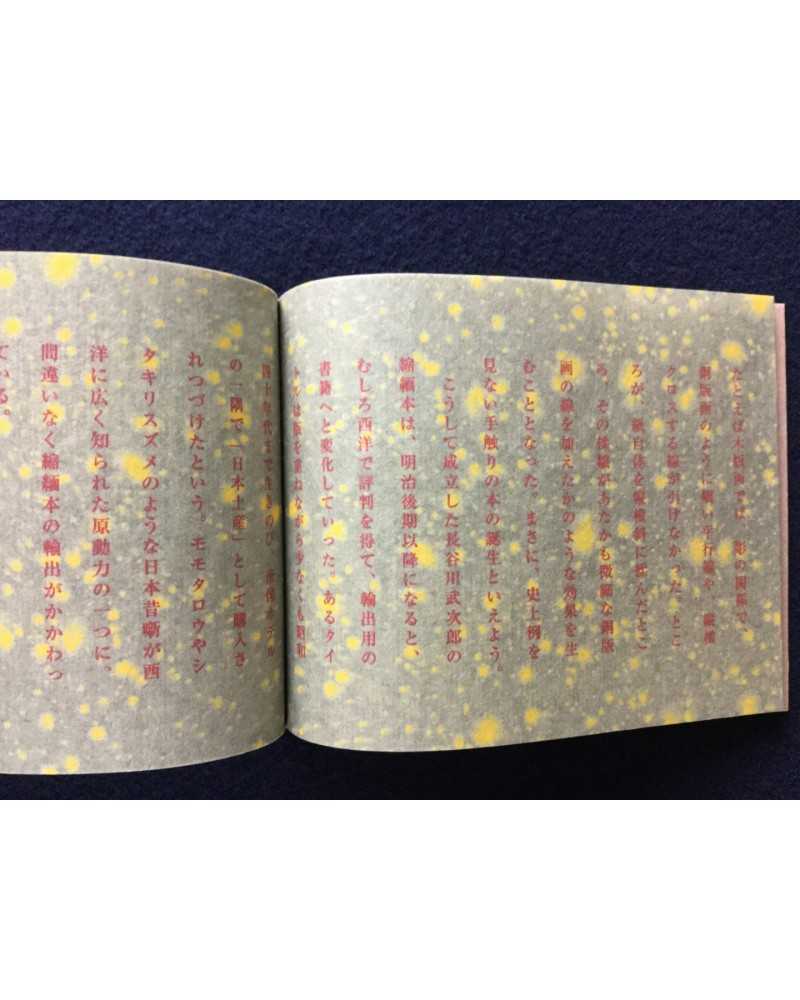 たとえば木版画では、彫の関係で、
銅版画のように細い平行線や、縦横
クロスする線が引けなかった。とこ
ろが、紙自体を縦横斜に揉んだとこ
ろ、その皺線があたかも微細な銅版
画の線を加えたかのような効果を生
むこととなった。まさに、史上例を
見ない手触りの本の誕生といえよう。
こうして成立した長谷川武次郎の
縮緬本は、明治後期以降になると、
むしろ西洋で評判を得て、輸出用の
書籍へと変化していった。あるタイ
トルは版を重ねながら少なくも昭和
四十年代まで生きのび、帝国ホテル
の一隅で「日本土産」として購入さ
れつづけたという。モモタロウやシ
タキリスズメのような日本昔噺が西
洋に広く知られた原動力の一つに、
間違いなく縮緬本の輸出がかかわっ
ている。